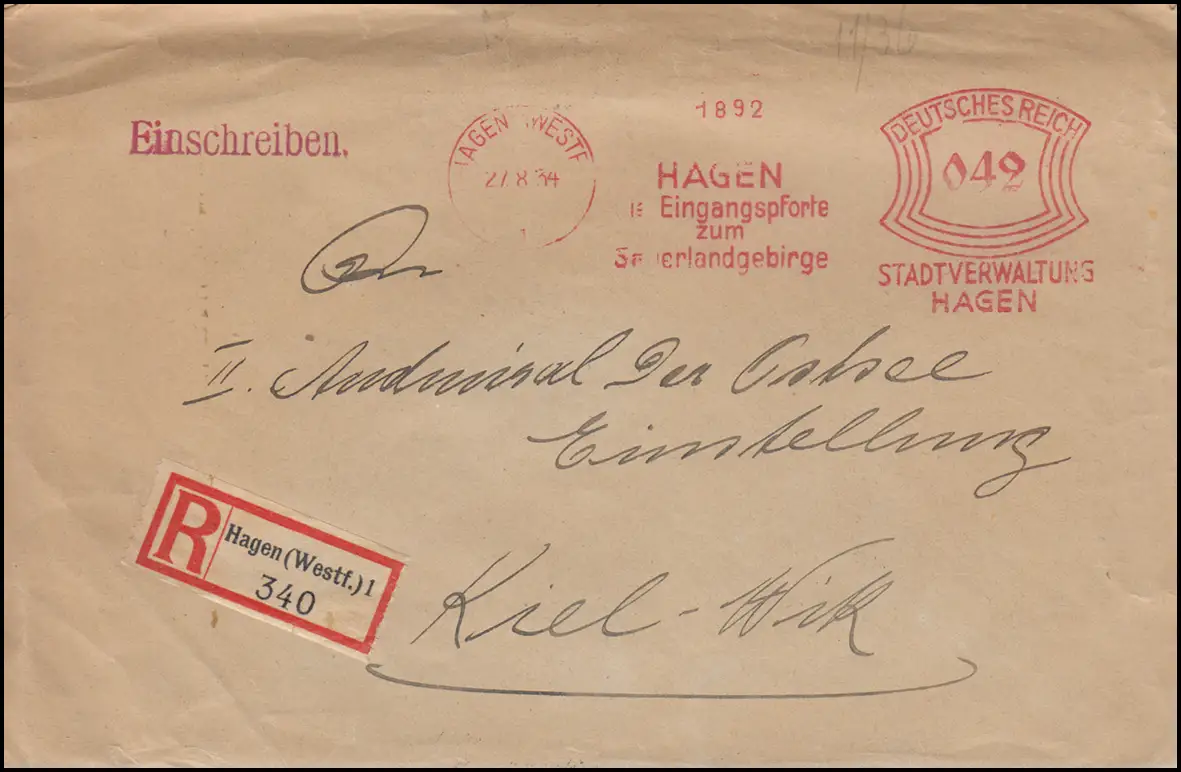 11/36
Einschreiben.
HAGEN (WESTF
27.8.34
1
1892
HAGEN
Eingangspforte
zum
Sauerlandgebirge
DEUTSCHES REICH
042
STADTVERWALTUNG
HAGEN
An
II. Audmiral Der Ostsee
Einstellung
Kiel-Wik
R Hagen (Westf.) 1
340